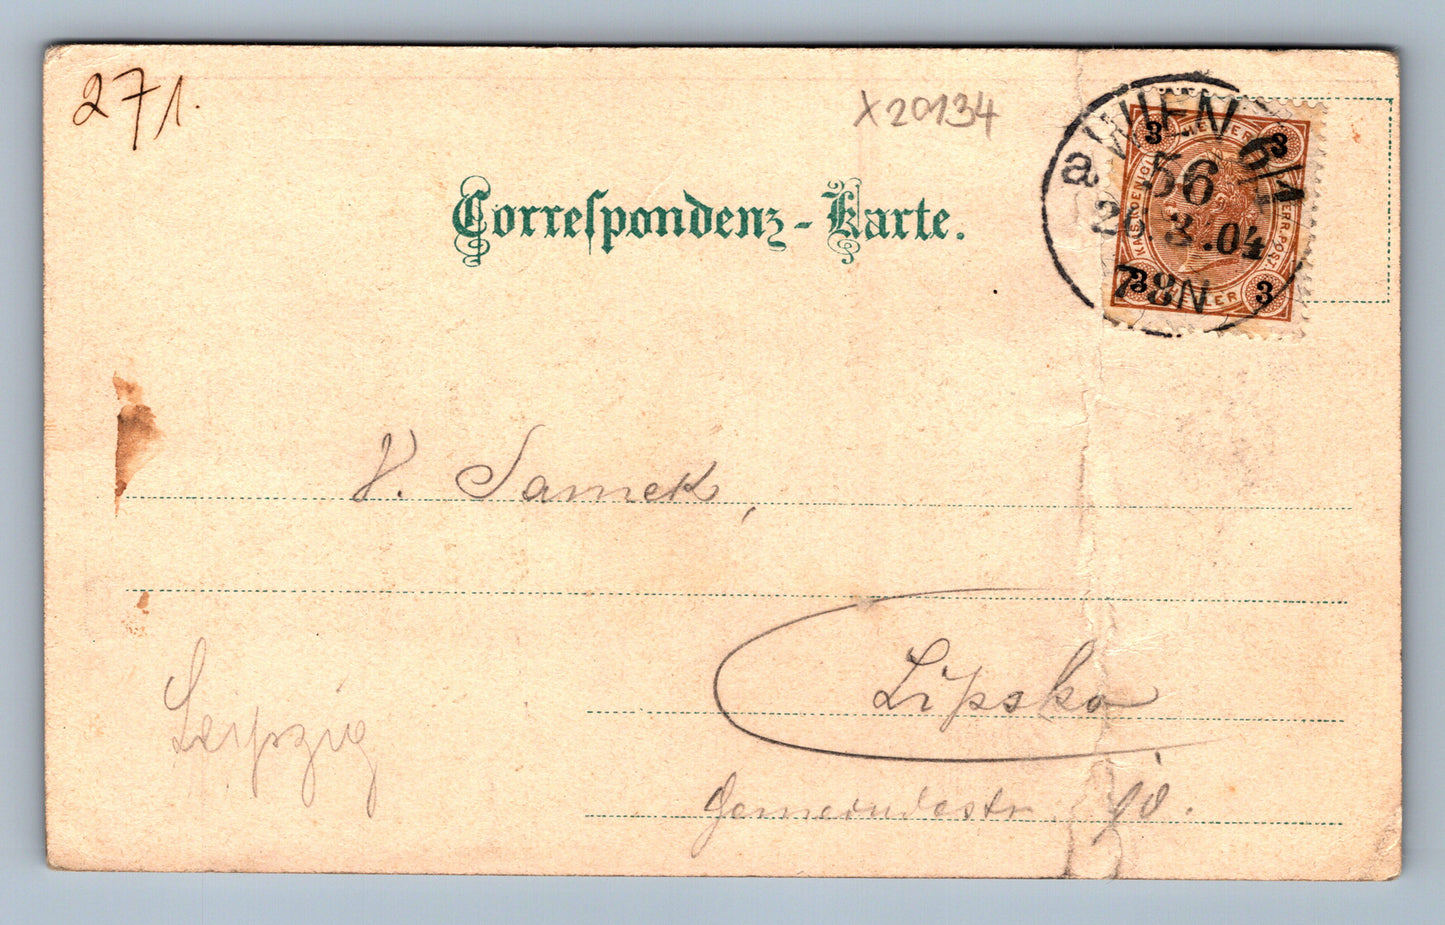 271.
X20134
Correspondenz-Karte.
a WIEN 6/1
56
26.3.04
7-8N
3 HELLER 3
3 HELLER 3
V. Samek,
Lipsko
Leipzig
Gemeindestr.